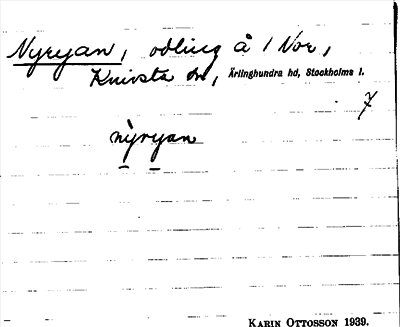 Nyryan, odling å 1 Vor,
Knivsta sn, Ärlinghundra hd, Stockholms l.
7
nyryan
KARIN OTTOSSON 1939.